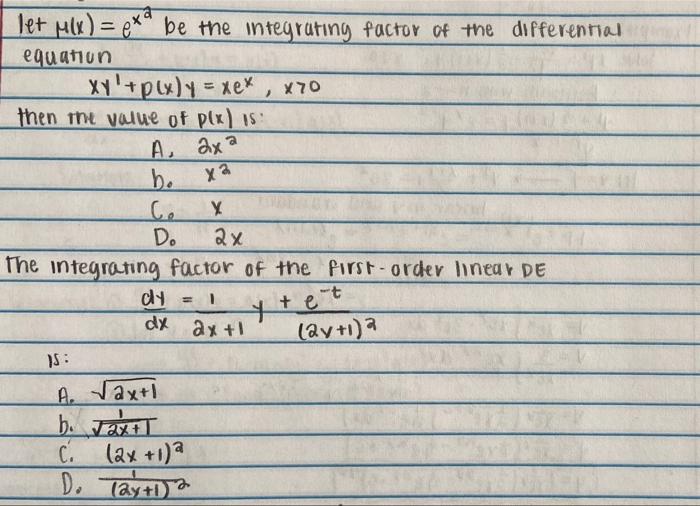 let μ(x) = e^x² be the integrating factor of the differential
equation
xy' + p(x)y = xe^x , x>0
then the value of p(x) is:
A. 2x²
b. x²
C. x
D. 2x
The integrating factor of the first-order linear DE
dy/dx = 1/(2x+1) y + e^-t/(2v+1)²
is:
A. √(2x+1)
b. 1/√(2x+1)
C. (2x+1)²
D. 1/(2y+1)²